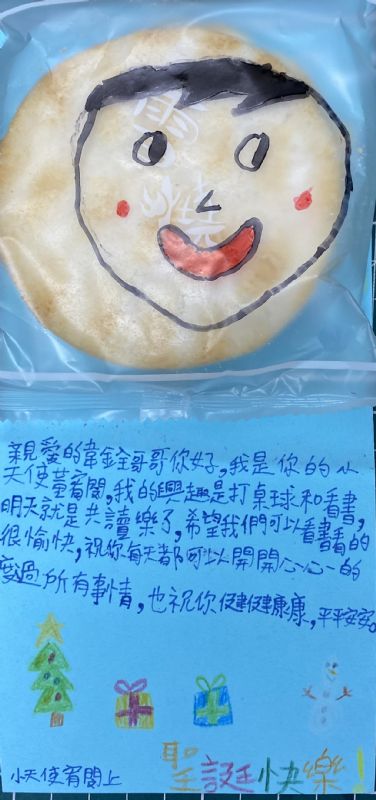 雪燒
親愛的韋銓哥哥你好,我是你的小
天使䓝宥閎,我的興趣是打桌球和看書,
明天就是共讀樂了,希望我們可以看書看的
很愉快,祝你每天都可以開開心心的
度過所有事情,也祝你健健康康,平平安安。
聖誕快樂!
小天使宥閎上